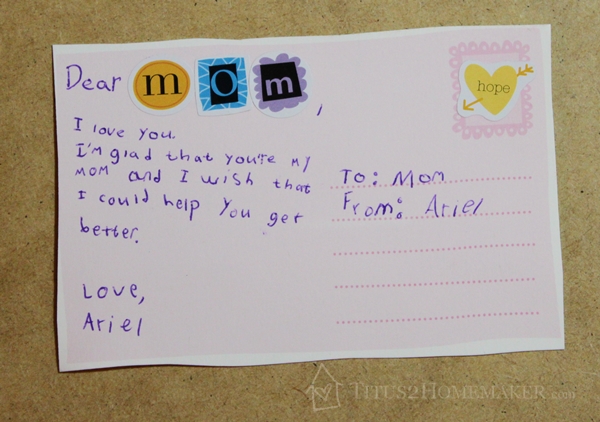 Dear mom,
hope
I love you.
I'm glad that you're my
mom and I wish that
I could help you get
better.
To: Mom
From: Ariel
Love,
Ariel
TITUS2HOMEMAKER.com